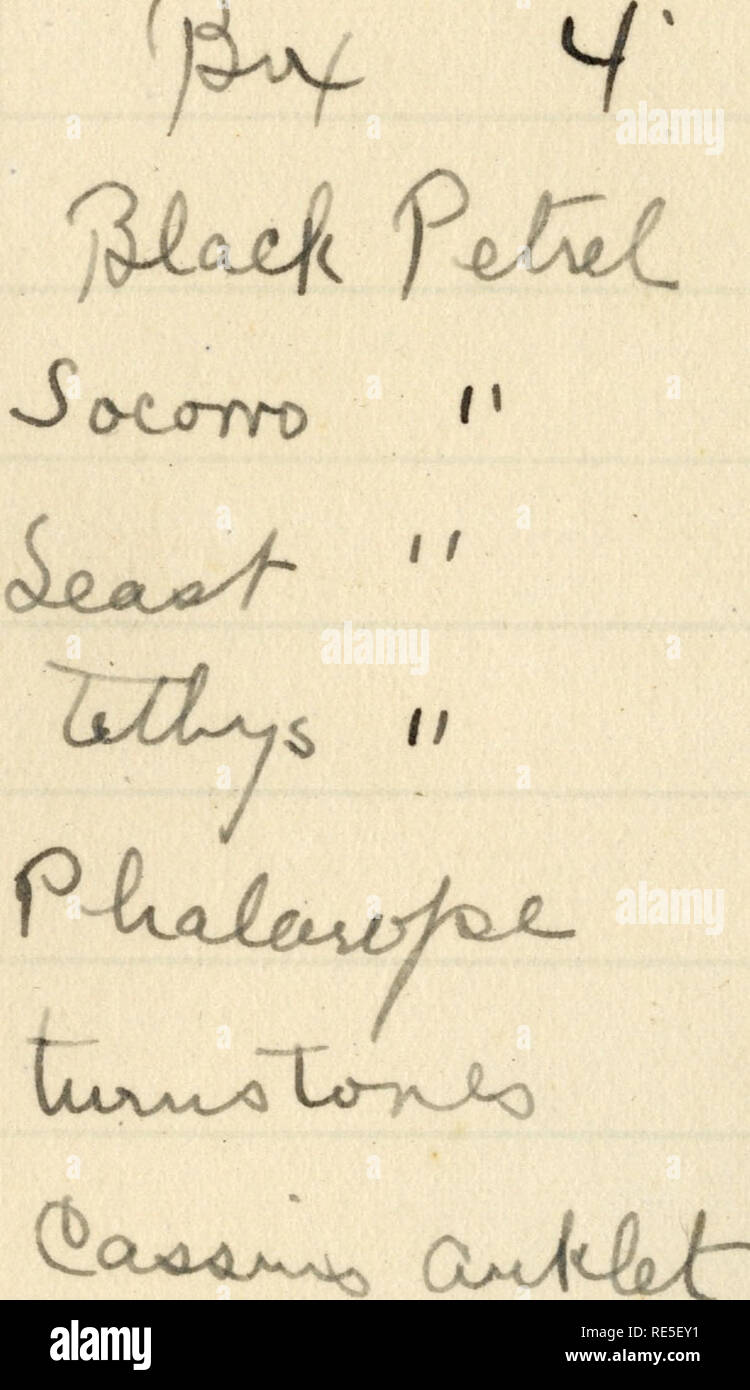 Box 4
Black Petrel
Socorro "
Least "
Tethys "
Phalarope
turnstones
Cassins auklet
alamy
Image ID: RE5EY1
www.alamy.com